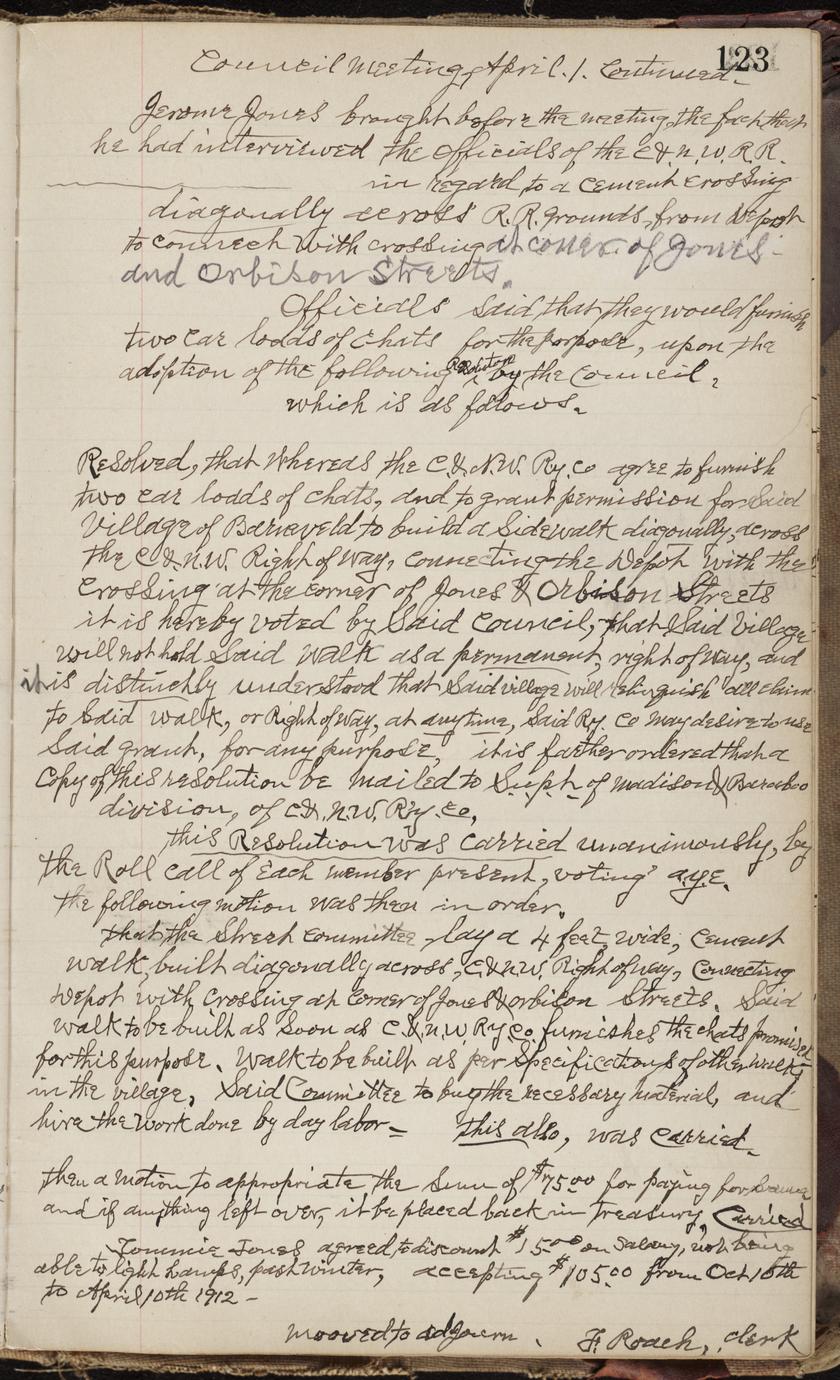 123
Council Meeting, April. 1. Continued.
Jerome Jones brought before the meeting, the fact that
he had interviewed the Officials of the C&.N.W.R.R.
in regard to a Cement Crossing
diagonally across R.R. grounds, from Depot
to connect with crossing at corner of Jones-
and Orbison Streets.
Officials said that they would furnish
two car loads of chats for the porpose, upon the
adoption of the following Resolution by the Council,
which is as follows.
Resolved, that Whereas the C.&.N.W. Ry. Co agree to furnish
two car loads of chats, and to grant permission for Said
Village of Barneveld to build a Sidewalk diagonally, across
the C&N.W. Right of Way, connecting the Depot with the
Crossing at the corner of Jones & Orbison Streets
it is hereby voted by Said Council, that Said Village
will not hold Said walk as a permanent, right of way, and
it is distinctly understood that Said village will relinquish all claim
to Said walk, or Right of Way, at anytime, Said Ry. Co may desire to use
Said grant, for any purpose, it is farther ordered that a
Copy of this resolution be mailed to Supt. of Madison & Baraboo
division, of C.&.N.W. Ry. Co,
this Resolution was carried unanimously, by
the Roll call of Each member present, voting aye.
the following motion was then in order.
that the Street Committee lay a 4 feet, wide, Cement
walk, built diagonally across, C&N.W. Right of way, Connecting
Depot with Crossing at Corner of Jones & Orbison Streets. Said
walk to be built as Soon as C.&.N.W. Ry Co, furnishes the chats promised
for this purpose. Walk to be built as per Specifications of other walks
in the village, Said Committee to buy the necessary material, and
hire the work done by day labor- this also, was Carried.
then a motion to appropriate the Sum of $75.00 for paying for Same
and if anything left over, it be placed back in Treasury, Carried
Tommie Jones agreed to discount $15.00 on Salary, not being
able to light lamps, past winter, accepting $105.00 from Oct 10th
to April 10th 1912-
mooved to adjourn. F. Roach, Clerk